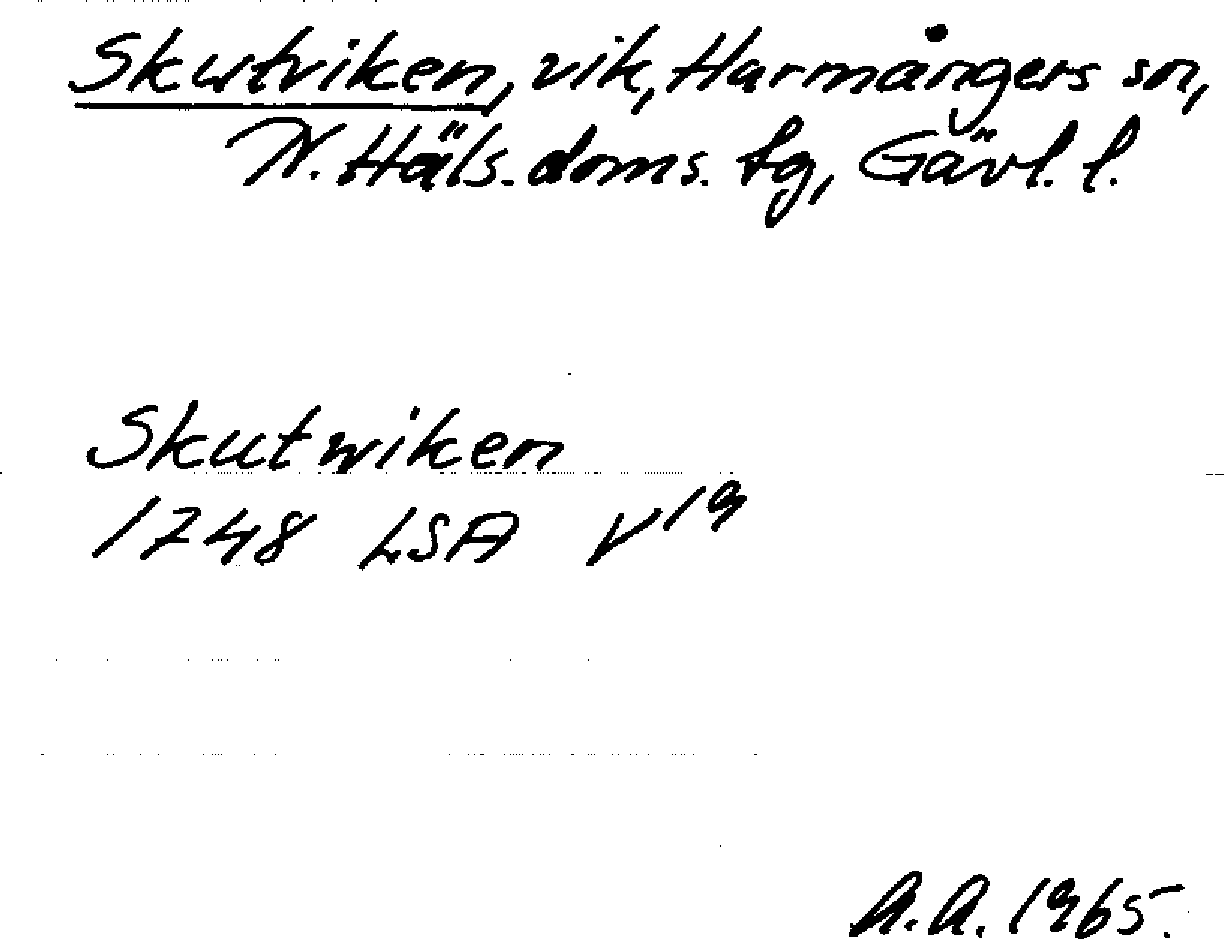 Skutviken, vik, Harmångers sn,
N. Häls. doms. tg, Gävl. l.
Skutwiken
1748 LSA V19
A.A. 1965.